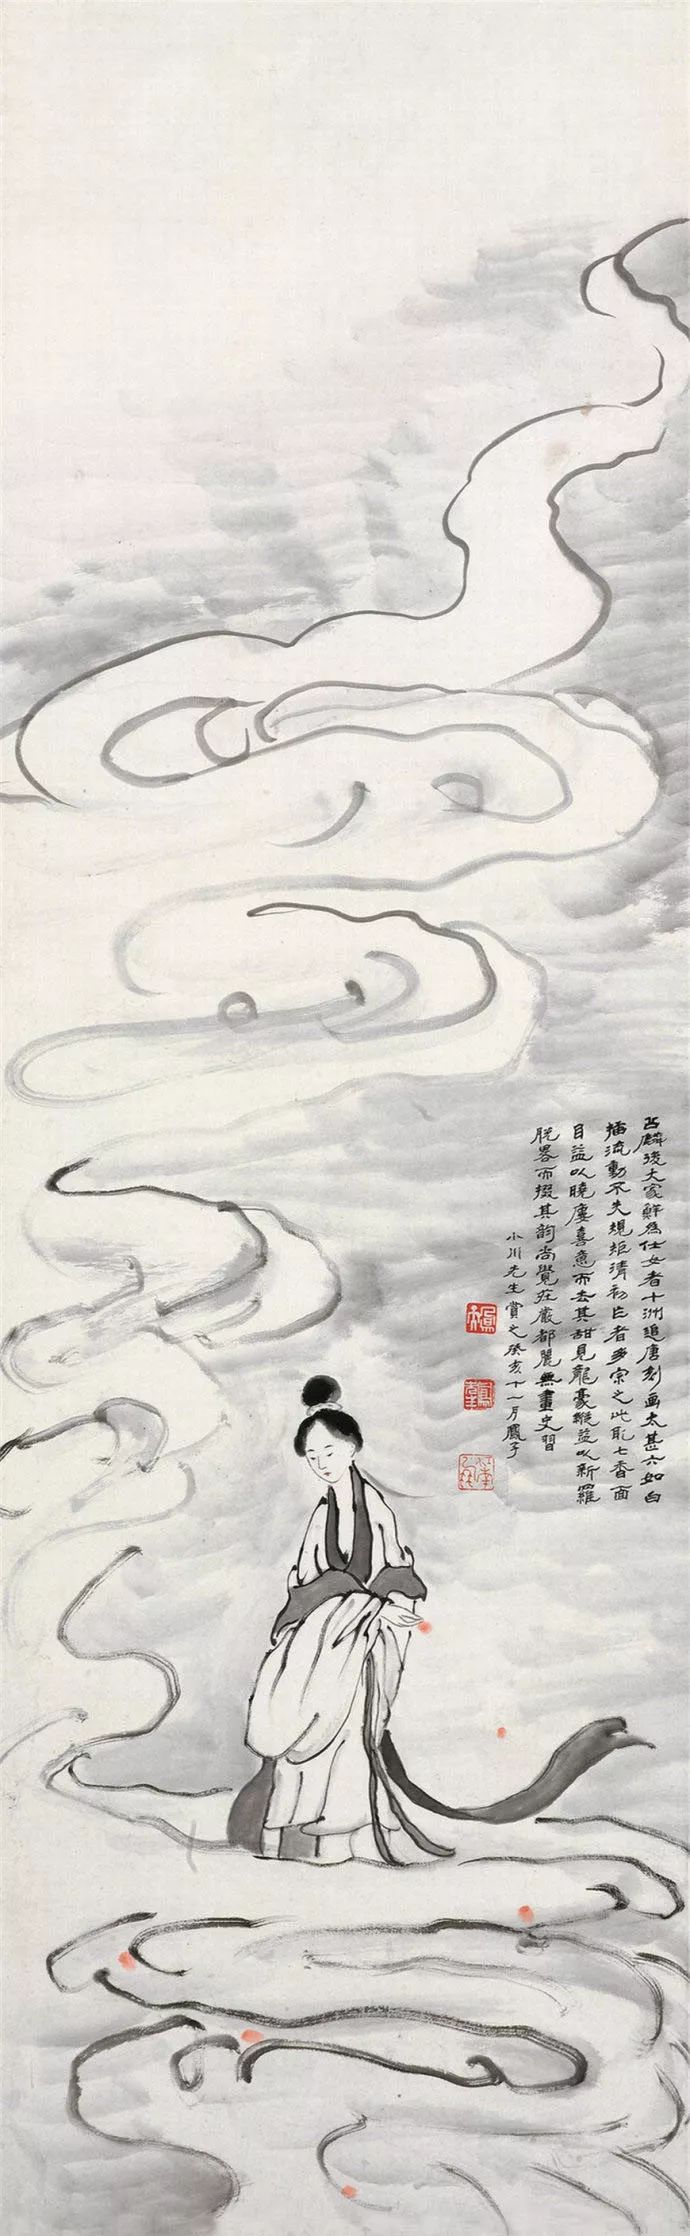 公麟後大家鮮為仕女者十洲追唐刻畫太甚六如白
描流動不失規矩清初已者多宗之此取七香面
目益以曉廔喜意而去其甜見龍豪縱益以新羅
脱畧而掇其韵尚覺莊嚴都麗無畫史習
小川先生賞之癸亥十一月鳳子